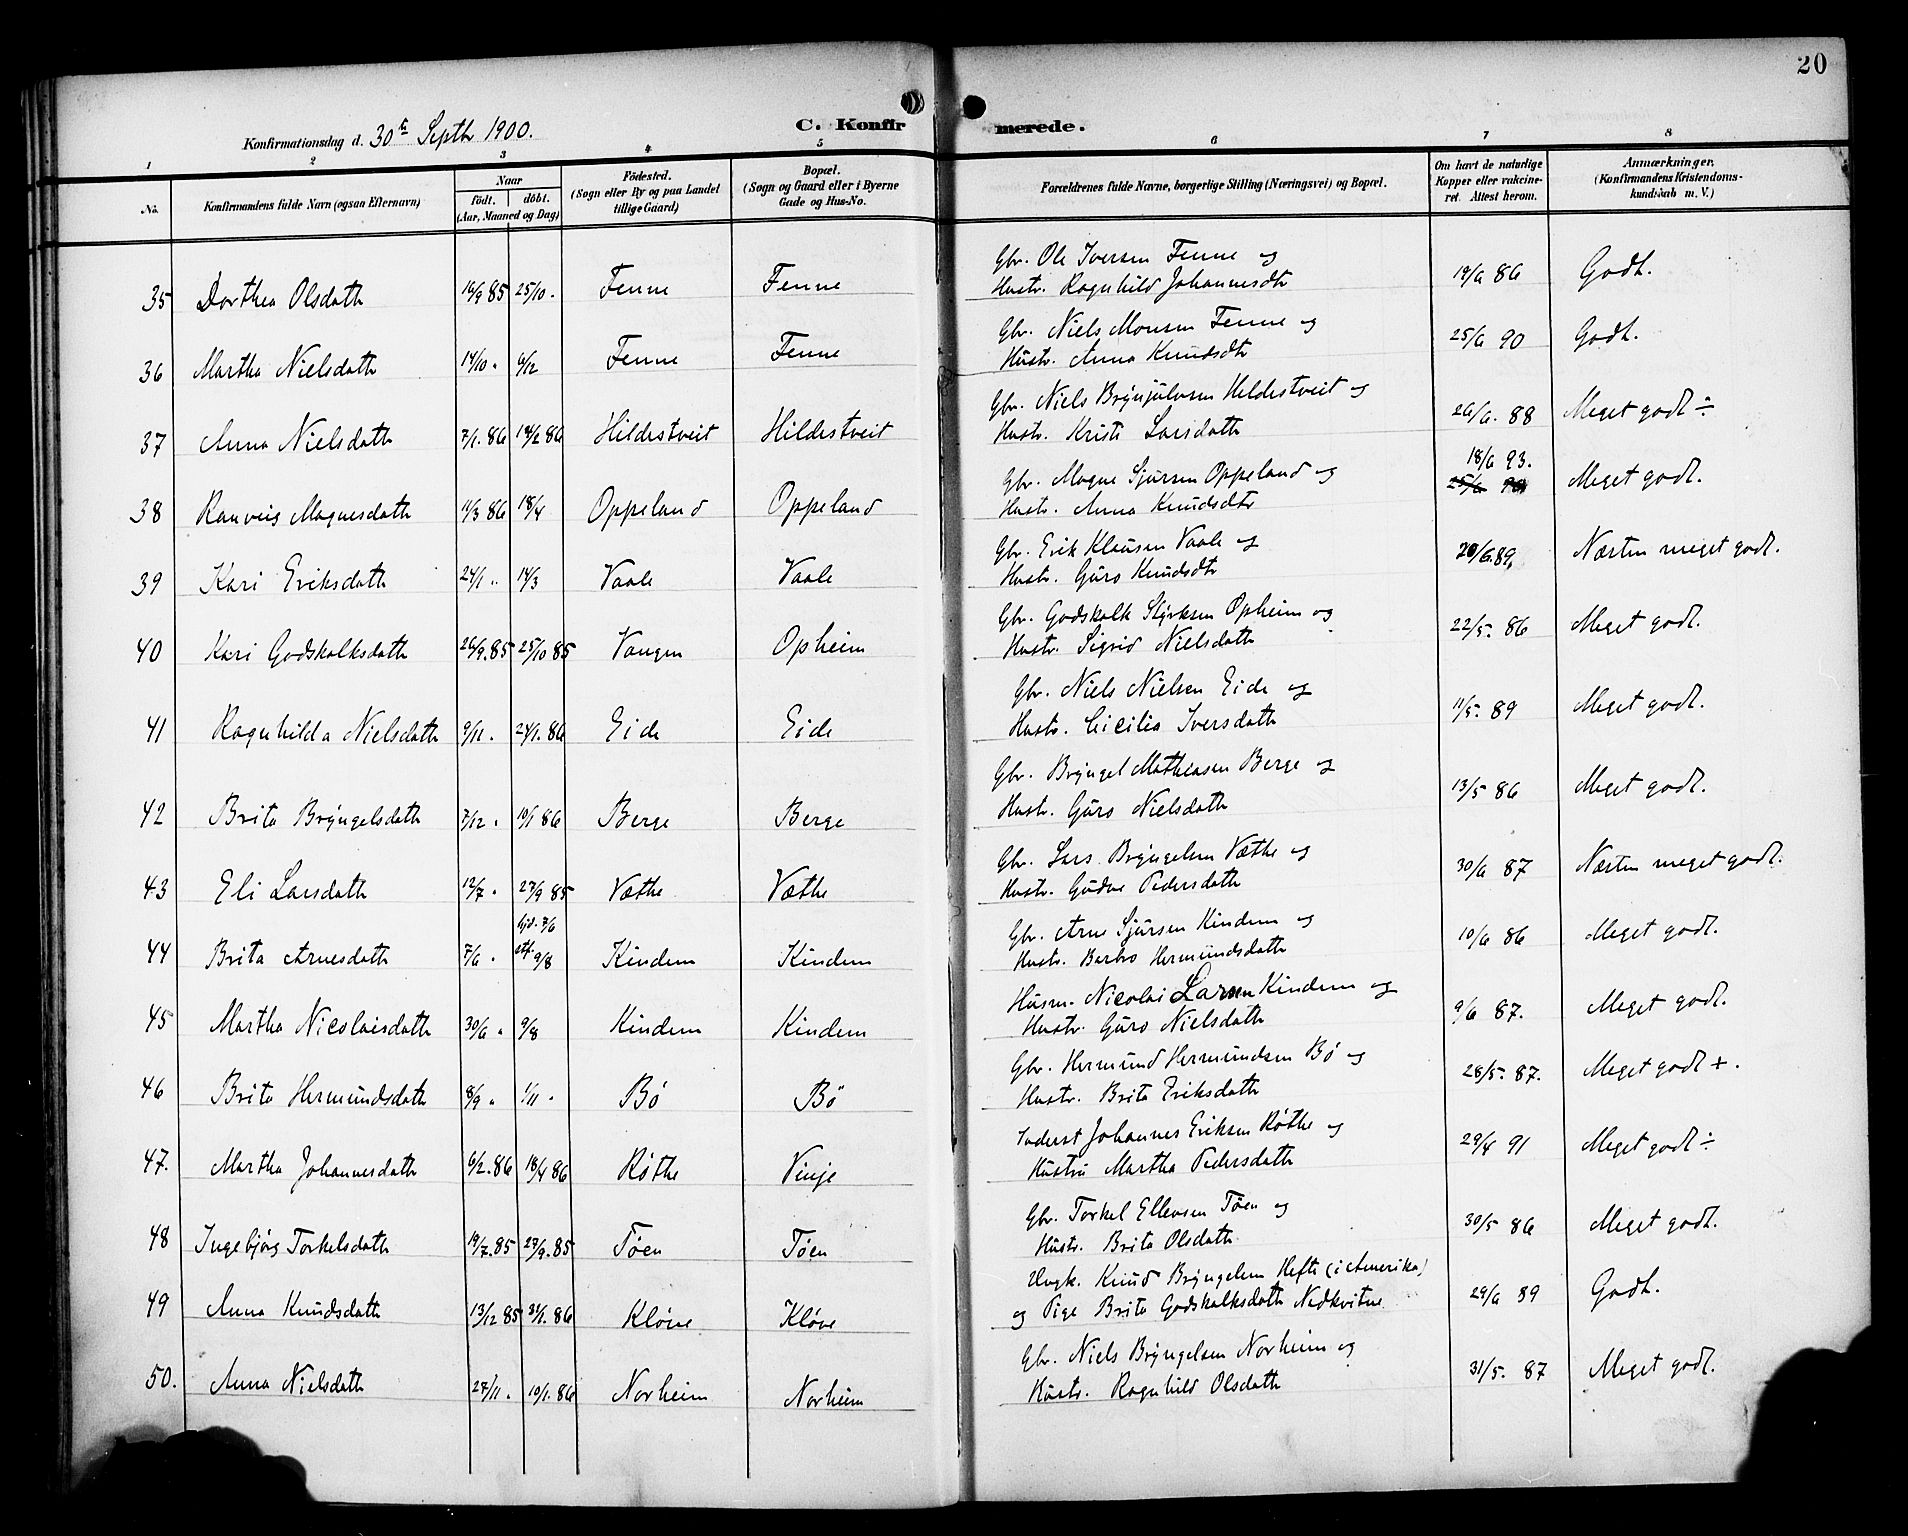 20
Konfirmationsdag d. 30te Septbr 1900.
C. Konfirmerede.
1 2 3 4 5 6 7 8
No. Konfirmandens fulde Navn (ogsaa Efternavn) Naar födt. döbt. (Aar, Maaned og Dag) Födested. (Sogn eller By og paa Landet tillige Gaard) Bopæl. (Sogn og Gaard eller i Byerne Gade og Hus-No. Forældrenes fulde Navne, borgerlige Stilling (Næringsvei) og Bopæl. Om havt de naturlige Kopper eller vakcineret. Attest herom. Anmærkninger, (Konfirmandens Kristendomskundskab m. V.)
Gbr. Ole Iversen Fenne og
35 Dorthea Olsdatter 16/9 85 25/10 . Fenne Fenne Hustr. Ragnhild Johannesdtr 19/6 86 Godt.
Gbr. Niels Monsen Fenne og
36 Martha Nielsdattr 14/10 " 6/12 Fenne Fenne Hustr. Anna Knudsdtr 25/6 90 Godt.
Gbr. Niels Brynjulvsen Heldestveit og
37 Anna Nielsdattr 7/1. 86 14/2 86 Hildestveit Hildestveit Hustr. Kristi Larsdattr 26/6. 88 Meget godt ÷
Gbr. Magne Sjursen Oppeland og 18/6 93.
38 Ranveig Magnesdattr 11/3 86 18/4 Oppeland Oppeland Hustr. Anna Knudsdtr 25/6 90 Meget godt.
Gbr. Erik Klausen Vaale og
39 Kari Eriksdattr 24/1 " 14/3 Vaale Vaale Hustr. Guro Knudsdtr 20/6.89, Næsten meget godt.
Gbr. Godskalk Styrksen Opheim og
40 Kari Godskalksdattr 26/9.85 25/10 85 Vangen Opheim Hustr. Sigrid Nielsdattr 22/5. 86 Meget godt.
Gbr. Niels Nielsen Eide og
41 Ragnhilda Nielsdattr 9/11 . 24/1. 86 Eide Eide Hustr. Cicilia Iversdattr 11/5. 89 Meget godt.
Gbr. Bryngel Mathiasen Berge og
42 Brita Bryngelsdattr 7/12 . 10/1 86 Berge Berge Hustr. Guro Nielsdattr 13/5 86 Meget godt.
Gbr. Lars Bryngelsen Væthe og
43 Eli Larsdattr 12/7 " 27/9 85 Væthe Væthe Hustr. Gudve Pedersdattr 30/6 87 Næsten meget godt.
hjd. 7/6 Gbr. Arne Sjursen Kindem og
44 Brita Arnesdattr 7/6 " stf 9/8 Kindem Kindem Hustr. Barbro Hermundsdattr 10/6 86 Meget godt.
Husm. Nicolai Larsen Kindem og
45 Martha Nicolaisdattr 30/6 " 9/8 Kindem Kindem Hustr. Guro Nielsdattr 9/6 87. Meget godt.
Gbr. Hermund Hermundsen Bö og
46 Brita Hermundsdattr 8/9 " 1/11 " Bö Bö Hustr. Brita Eriksdattr 28/5. 87. Meget godt +.
Inderst Johannes Eriksen Röthe og
47. Martha Johannesdattr 6/2. 86 18/4 86 Röthe Vinje Hustru Martha Pedersdattr 29/4 91 Meget godt ÷
Gbr. Torkel Ellevsen Töen og
48 Ingebjörg Torkelsdattr 19/7.85 27/9.85 Töen Töen Hustr. Brita Olsdattr 30/5 86 Meget godt.
Ungk. Knud Bryngelsen Hefte (i Amerika)
49 Anna Knudsdattr 13/12 85 31/1. 86 Klöve Klöve og Pige Brita Godskalksdattr Nedkvitne 29/6 89 Godt.
Gbr. Niels Bryngelsen Norheim og
50. Anna Nielsdattr 27/11 . 10/1. 86 Norheim Norheim Hustr. Ragnhild Olsdattr 31/5. 87 Meget godt.